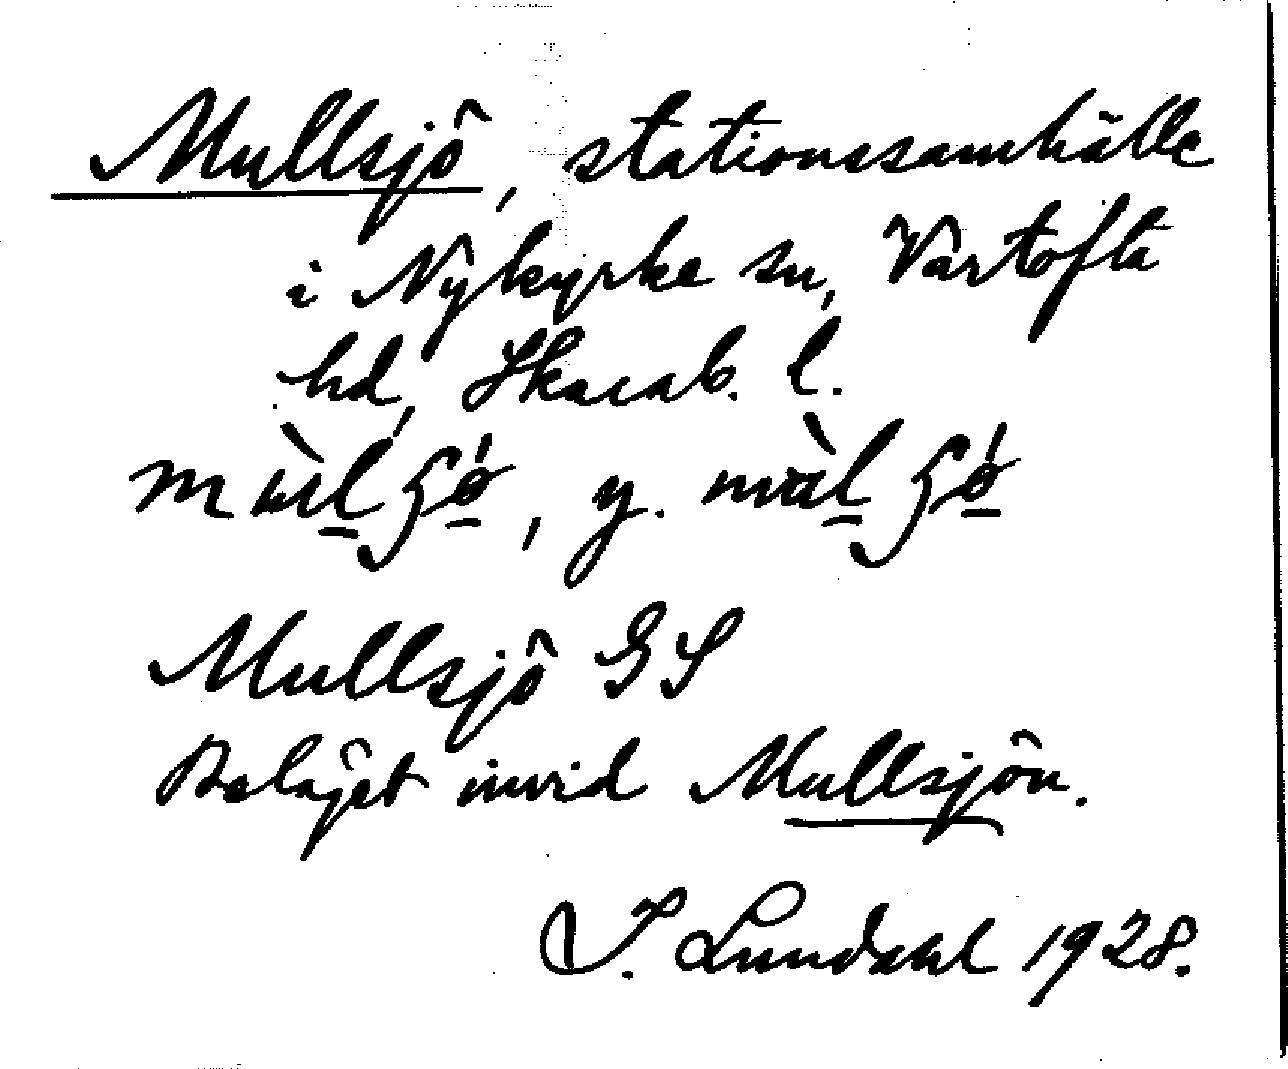 Mullsjö, stationssamhälle
i Nykyrke sn, Vartofta
hd, Skarab. l.
y.
Mullsjö GS
Beläget invid Mullsjön.
I. Lundahl 1928.